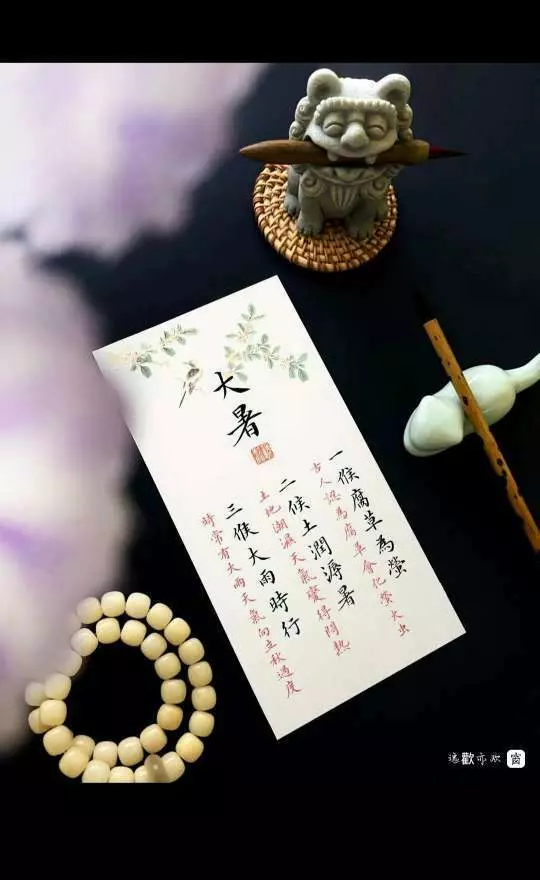 大暑
一候腐草為螢
古人認為腐草會化螢火虫
二候土潤溽暑
土地潮濕天氣變得悶熱
三候大雨時行
時常有大雨天氣向立秋過度
歡亦欢
窗